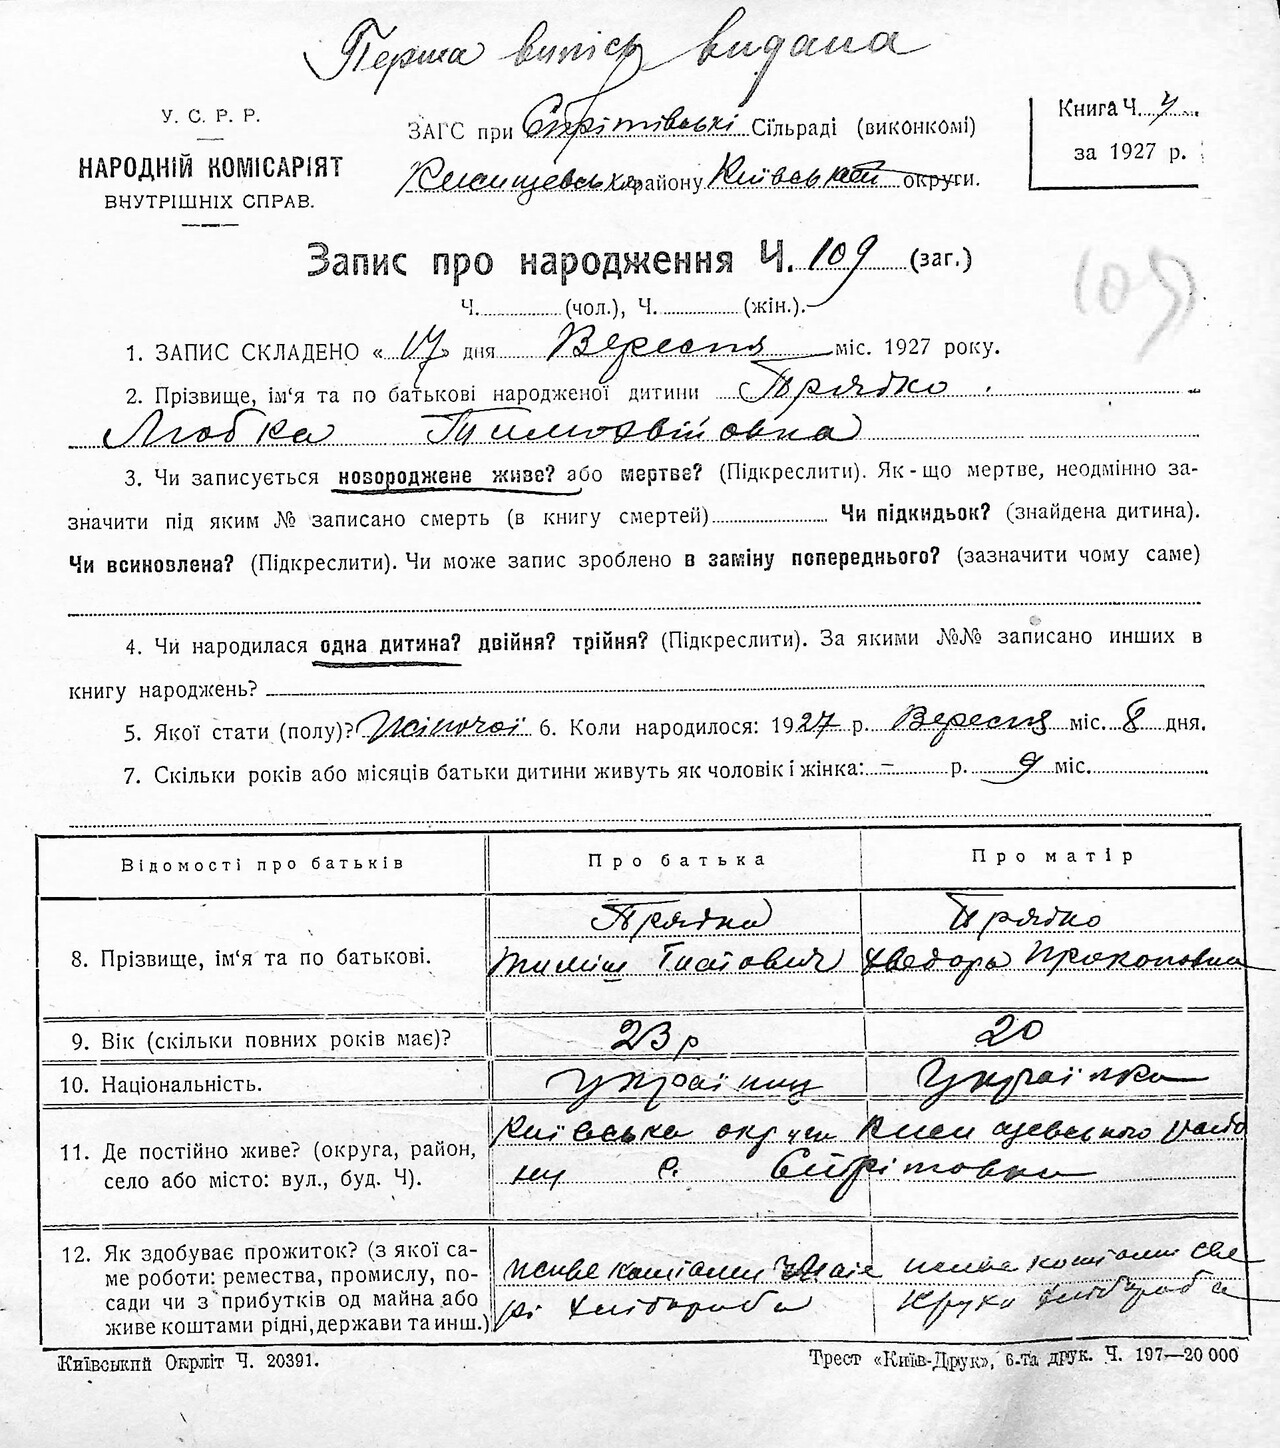 Перша випісь видана
У. С. Р. Р.
НАРОДНІЙ КОМІСАРІЯТ
ВНУТРІШНІХ СПРАВ.
ЗАГС при Сільраді (виконкомі)
району Київської округи.
Книга Ч.
за 1927 р.
Запис про народження Ч. 109 (заг.)
109
Ч. (чол.), Ч. (жін.).
1. ЗАПИС СКЛАДЕНО « 17 » дня Вересня міс. 1927 року.
2. Прізвище, ім'я та по батькові народженої дитини Прядко
Любка Тимофвійовна
3. Чи записується новороджене живе? або мертве? (Підкреслити). Як-що мертве, неодмінно за-
значити під яким № записано смерть (в книгу смертей) Чи підкидьок? (знайдена дитина).
Чи всиновлена? (Підкреслити). Чи може запис зроблено в заміну попереднього? (зазначити чому саме)
4. Чи народилася одна дитина? двійня? трійня? (Підкреслити). За якими №№ записано инших в
книгу народжень?
5. Якої стати (полу)? Жіночої 6. Коли народилося: 1927 р. Вересня міс. 8 дня.
7. Скільки років або місяців батьки дитини живуть як чоловік і жінка: — р. 9 міс.
Відомості про батьків Про батька Про матір
8. Прізвище, ім'я та по батькові.
Прядко Прядко
Тиміш Хведора Прокоповна
9. Вік (скільки повних років має)? 23 р 20
10. Національність. Українец Українка
11. Де постійно живе? (округа, район,
село або місто: вул., буд. Ч).
Київська округа
с.
12. Як здобуває прожиток? (з якої са-
ме роботи: ремества, промислу, по-
сади чи з прибутків од майна або
живе коштами рідні, держави та инш.)
живе коштами
хлібороба хлібороба
Київський Окрліт Ч. 20391.
Трест «Київ-Друк», 6-та друк. Ч. 197—20 000